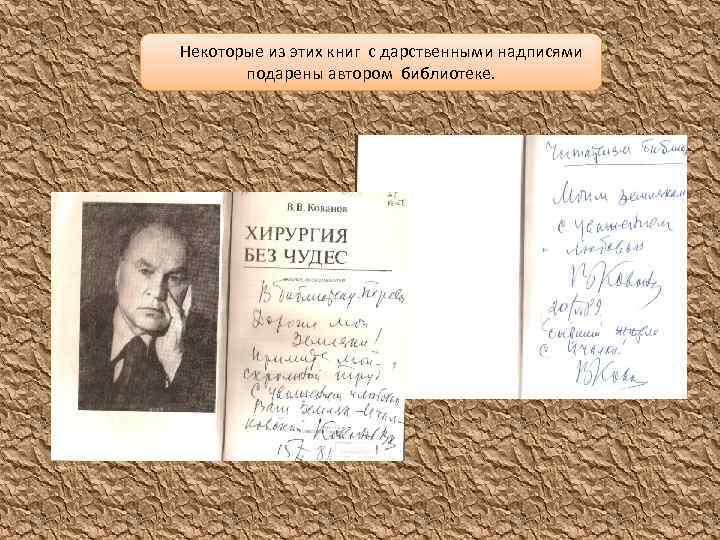 Некоторые из этих книг с дарственными надписями
подарены автором библиотеке.
В.В. Кованов
ХИРУРГИЯ
БЕЗ ЧУДЕС
В библиотеку
Дорогие мои
Земляки!
Примите мой
скромный труд
С уважением и любовью
Ваш земляк
Читателям библи
Моим землякам
с уважением
и любовью
В Кованов
89
Бывший
с
В Кова